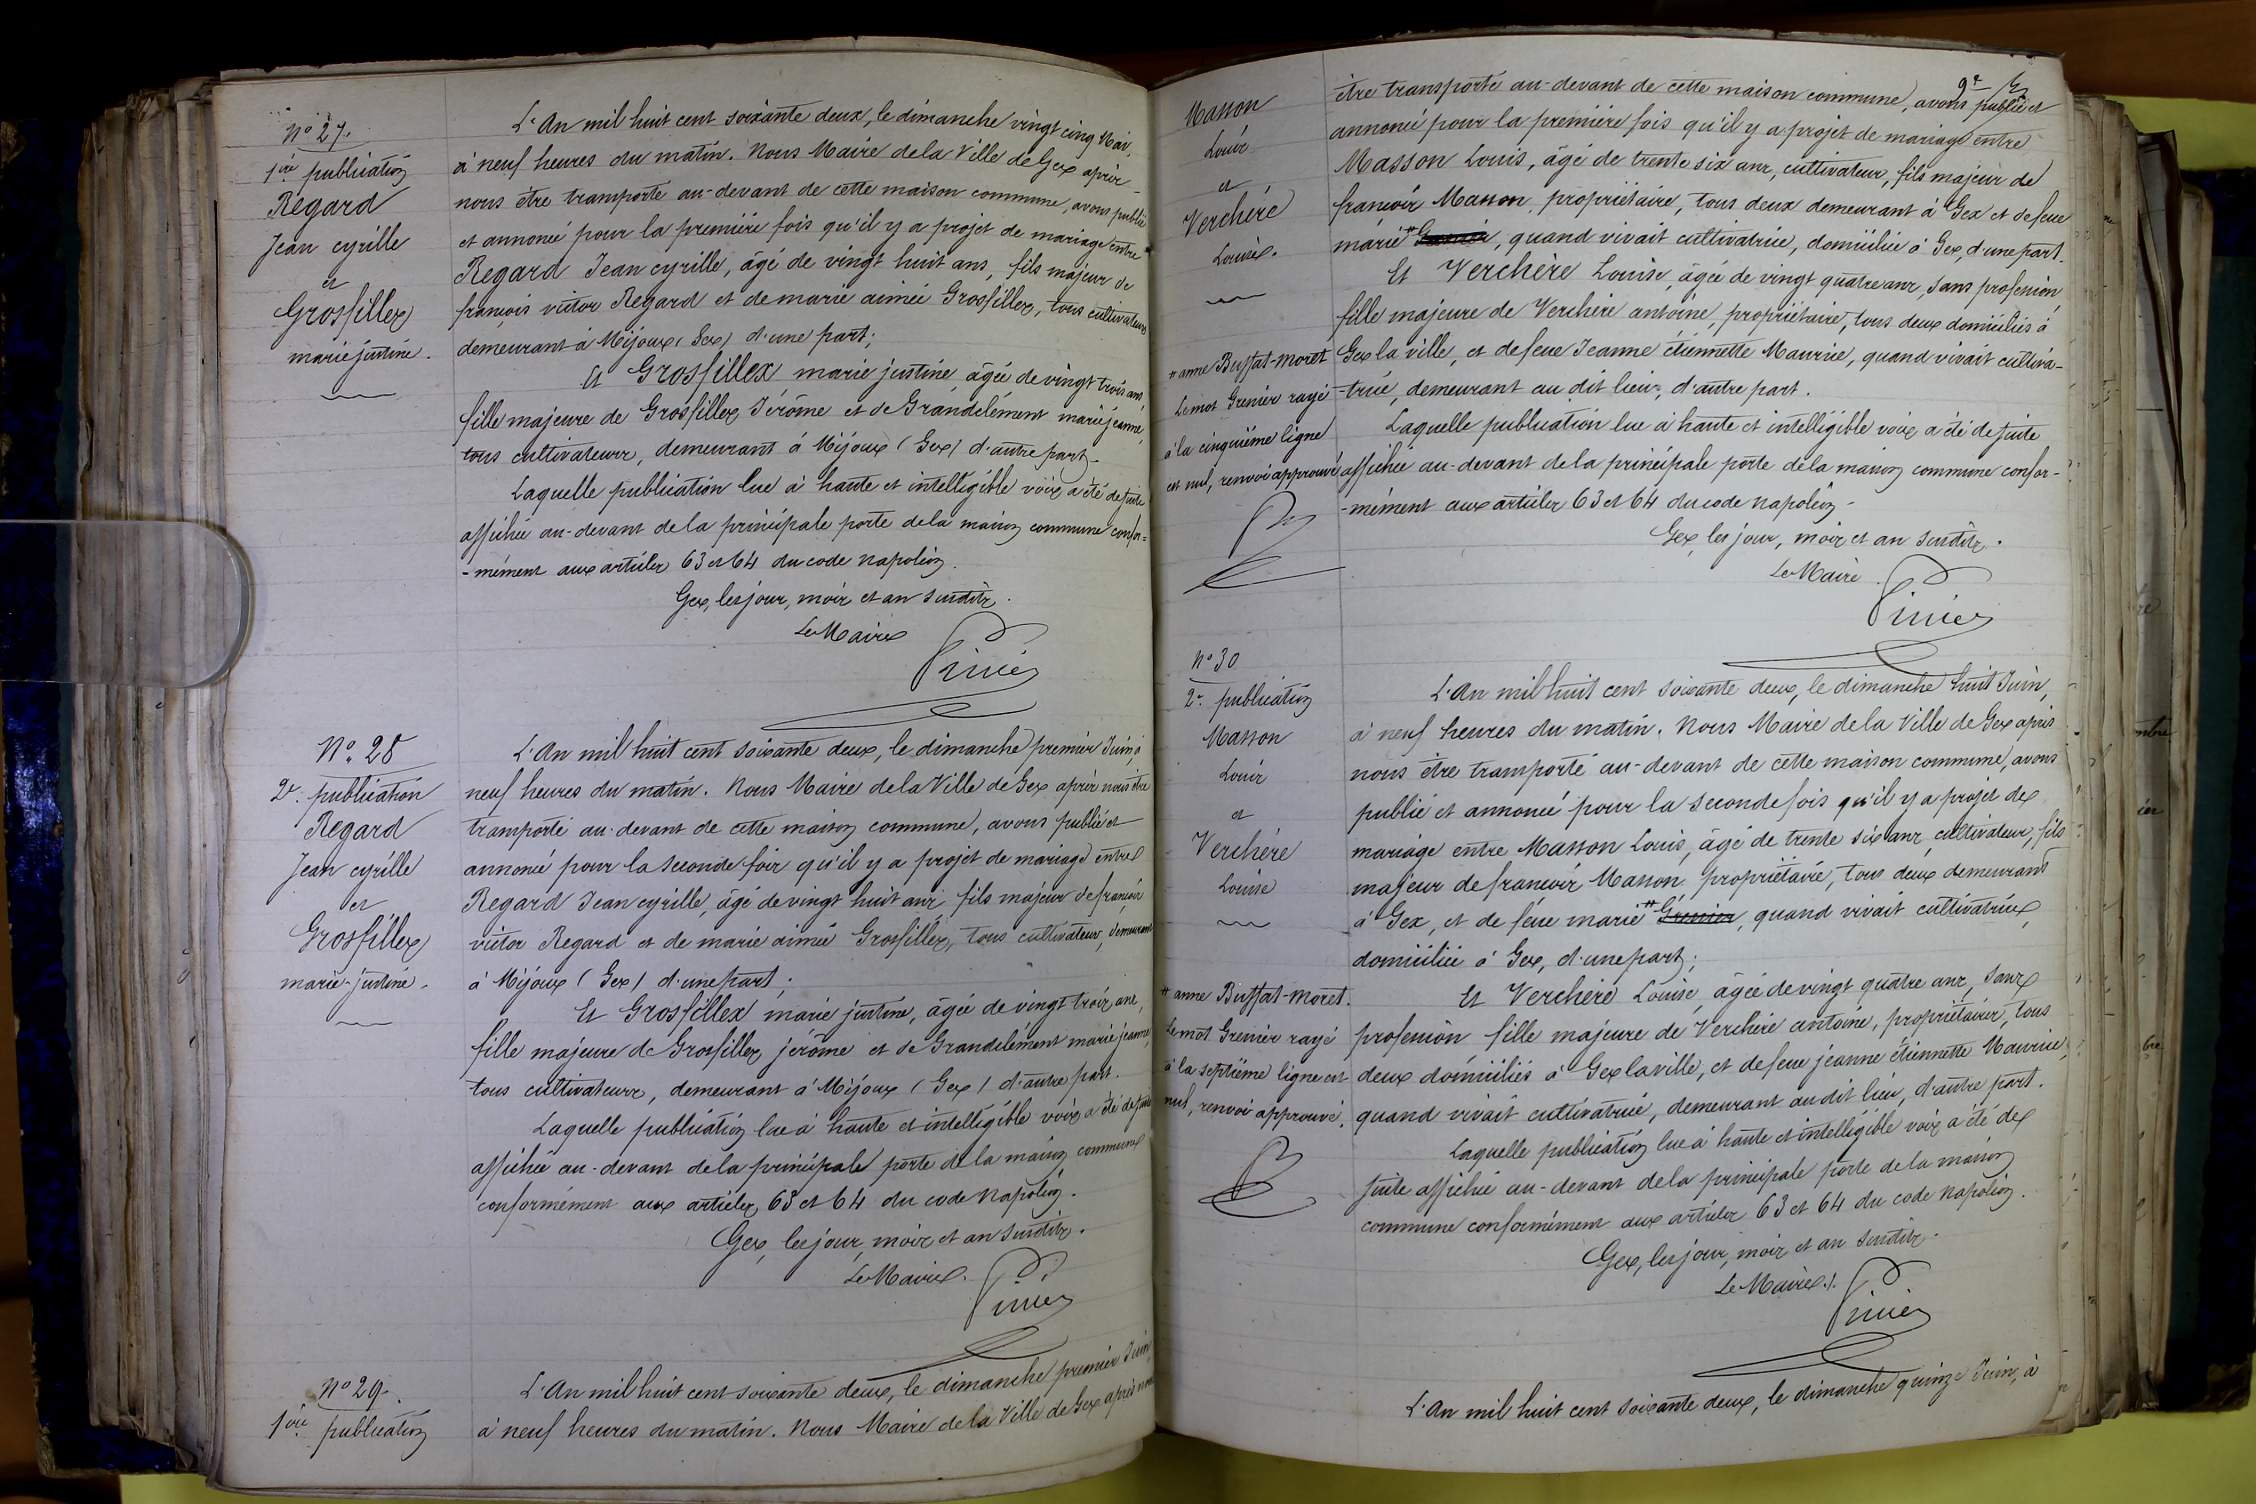 N° 27.
1ère publication
Regard
Jean cyrille
et
Grosfillex
marie justine.
L'An mil huit cent soixante deux, le dimanche vingt cinq Mai,
à neuf heures du matin. Nous Maire de la Ville de Gex après
nous être transporté au-devant de cette maison commune, avons publié
et annoncé pour la première fois qu'il y a projet de mariage entre
Regard Jean cyrille, âgé de vingt huit ans, fils majeur de
françois victor Regard et de marie aimée Grosfillex, tous cultivateurs
demeurant à Mijoux (Gex) d'une part;
Et Grosfillex marie justine, âgée de vingt trois ans
fille majeure de Grosfillex Jérôme et de Grandclément marie jeanne,
tous cultivateurs, demeurant à Mijoux (Gex) d'autre part.
Laquelle publication lue à haute et intelligible voix a été de suite
affichée au-devant de la principale porte de la maison commune confor=
-mément aux articles 63 et 64 du code napoléon.
Gex, les jour, mois et an susdits.
Le Maire
N° 28
2e. publication
Regard
Jean cyrille
et
Grosfillex
marie-justine.
L'An mil huit cent soixante deux, le dimanche premier Juin, à
neuf heures du matin. Nous Maire de la Ville de Gex après nous être
transporté au-devant de cette maison commune, avons publié et
annoncé pour la seconde fois qu'il y a projet de mariage entre
Regard Jean cyrille, âgé de vingt huit ans fils majeur de françois
victor Regard et de marie aimée Grosfillex, tous cultivateurs, demeurant
à Mijoux (Gex) d'une part;
Et Grosfillex marie justine, âgée de vingt trois ans,
fille majeure de Grosfillex jérôme et de Grandclément marie jeanne,
tous cultivateurs, demeurant à Mijoux (Gex) d'autre part.
Laquelle publication lue à haute et intelligible voix a été de suite
affichée au-devant de la principale porte de la maison commune
conformément aux articles 63 et 64 du code Napoléon.
Gex, les jour, mois et an susdits.
Le Maire.
N° 29.
1ère publication
L'An mil huit cent soixante deux, le dimanche premier Juin
à neuf heures du matin. Nous Maire de la Ville de Gex après nous
Masson
Louis
et
Verchère
Louise.
9e
être transporté au-devant de cette maison commune, avons publié et
annoncé pour la première fois qu'il y a projet de mariage entre
Masson Louis, âgé de trente six ans, cultivateur, fils majeur de
françois Masson, propriétaire, tous deux demeurant à Gex et de feue
marie # Grenier, quand vivait cultivatrice, domiciliée à Gex, d'une part.
Et Verchère Louise, âgée de vingt quatre ans, sans profession,
fille majeure de Verchère antoine, propriétaire, tous deux domiciliés à
Gex la ville, et de feue Jeanne étiennette Maurice, quand vivait cultiva-
-trice, demeurant au dit lieu, d'autre part.
Laquelle publication lue à haute et intelligible voix a été de suite
affichée au-devant de la principale porte de la maison commune confor-
-mément aux articles 63 et 64 du code napoléon-
Gex, les jour, mois et an susdits.
Le Maire
# anne Buffat-Moret
Le mot Grenier rayé
à la cinquième ligne
est nul, renvoi approuvé
N° 30
2e. publication
Masson
Louis
et
Verchère
Louise
L'An mil huit cent soixante deux, le dimanche huit Juin,
à neuf heures du matin. Nous Maire de la Ville de Gex après
nous être transporté au-devant de cette maison commune, avons
publié et annoncé pour la seconde fois qu'il y a projet de
mariage entre Masson Louis, âgé de trente six ans, cultivateur, fils
majeur de françois Masson propriétaire, tous deux demeurant
à Gex, et de feue marie # Grenier, quand vivait cultivatrice,
domiciliée à Gex, d'une part;
Et Verchère Louise, âgée de vingt quatre ans, sans
profession fille majeure de Verchère antoine, propriétaire, tous
deux domiciliés à Gex la ville, et de feue jeanne étiennette Maurice,
quand vivait cultivatrice, demeurant au dit lieu, d'autre part.
Laquelle publication lue à haute et intelligible voix a été de
suite affichée au-devant de la principale porte de la maison
commune conformément aux articles 63 et 64 du code Napoléon.
Gex, les jour, mois et an susdits.
Le Maire.
# anne Buffat-Moret.
Le mot Grenier rayé
à la septième ligne est
nul, renvoi approuvé.
L'An mil huit cent soixante deux, le dimanche quinze Juin, à